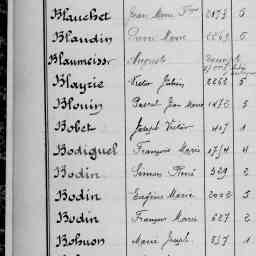 Blauchet Jean Marie 2173 6
Blaudin Pierre Marie 2269 6
Blaumeissr Auguste
Blayzie Victor Julien 2262 5
Blouin Pascal Jean Marie 1472 5
Bobet Joseph Victor 407 1
Bodiguel François Marie 1754 4
Bodin Simon René 929 2
Bodin Eugène Marie 2002 5
Bodin François Marie 627 2
Bohuon Marie Joseph 557 1